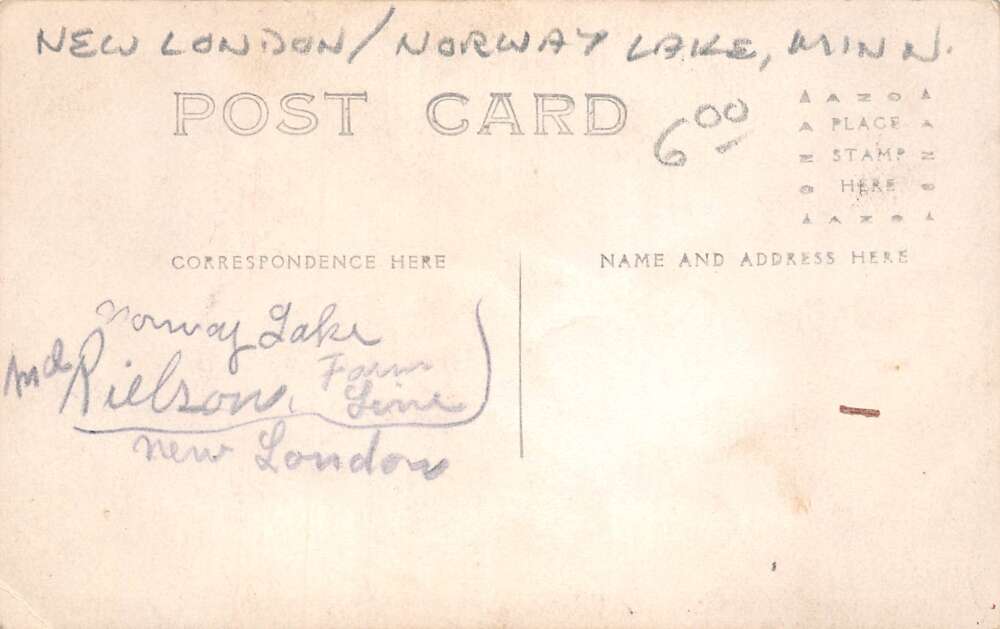 NEW LONDON/NORWAY LAKE, MINN.
POST CARD
6 00
AZO
PLACE
STAMP
HERE
AZO
CORRESPONDENCE HERE
NAME AND ADDRESS HERE
Norway Lake
And Rielson, Farm Line
New London